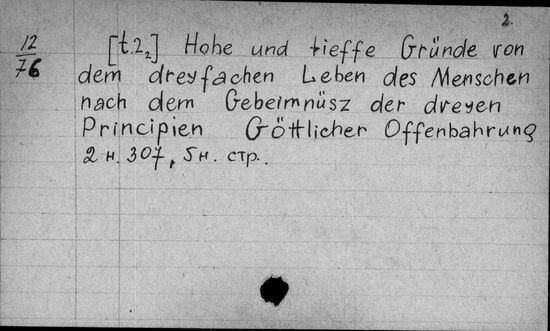 2.
12/76 [t.2₂] Hohe und tieffe Gründe von
dem dreyfachen Leben des Menschen
nach dem Gebeimnüsz der dreyen
Principien Göttlicher Offenbahrung
2 н. 307, 5 н. стр.